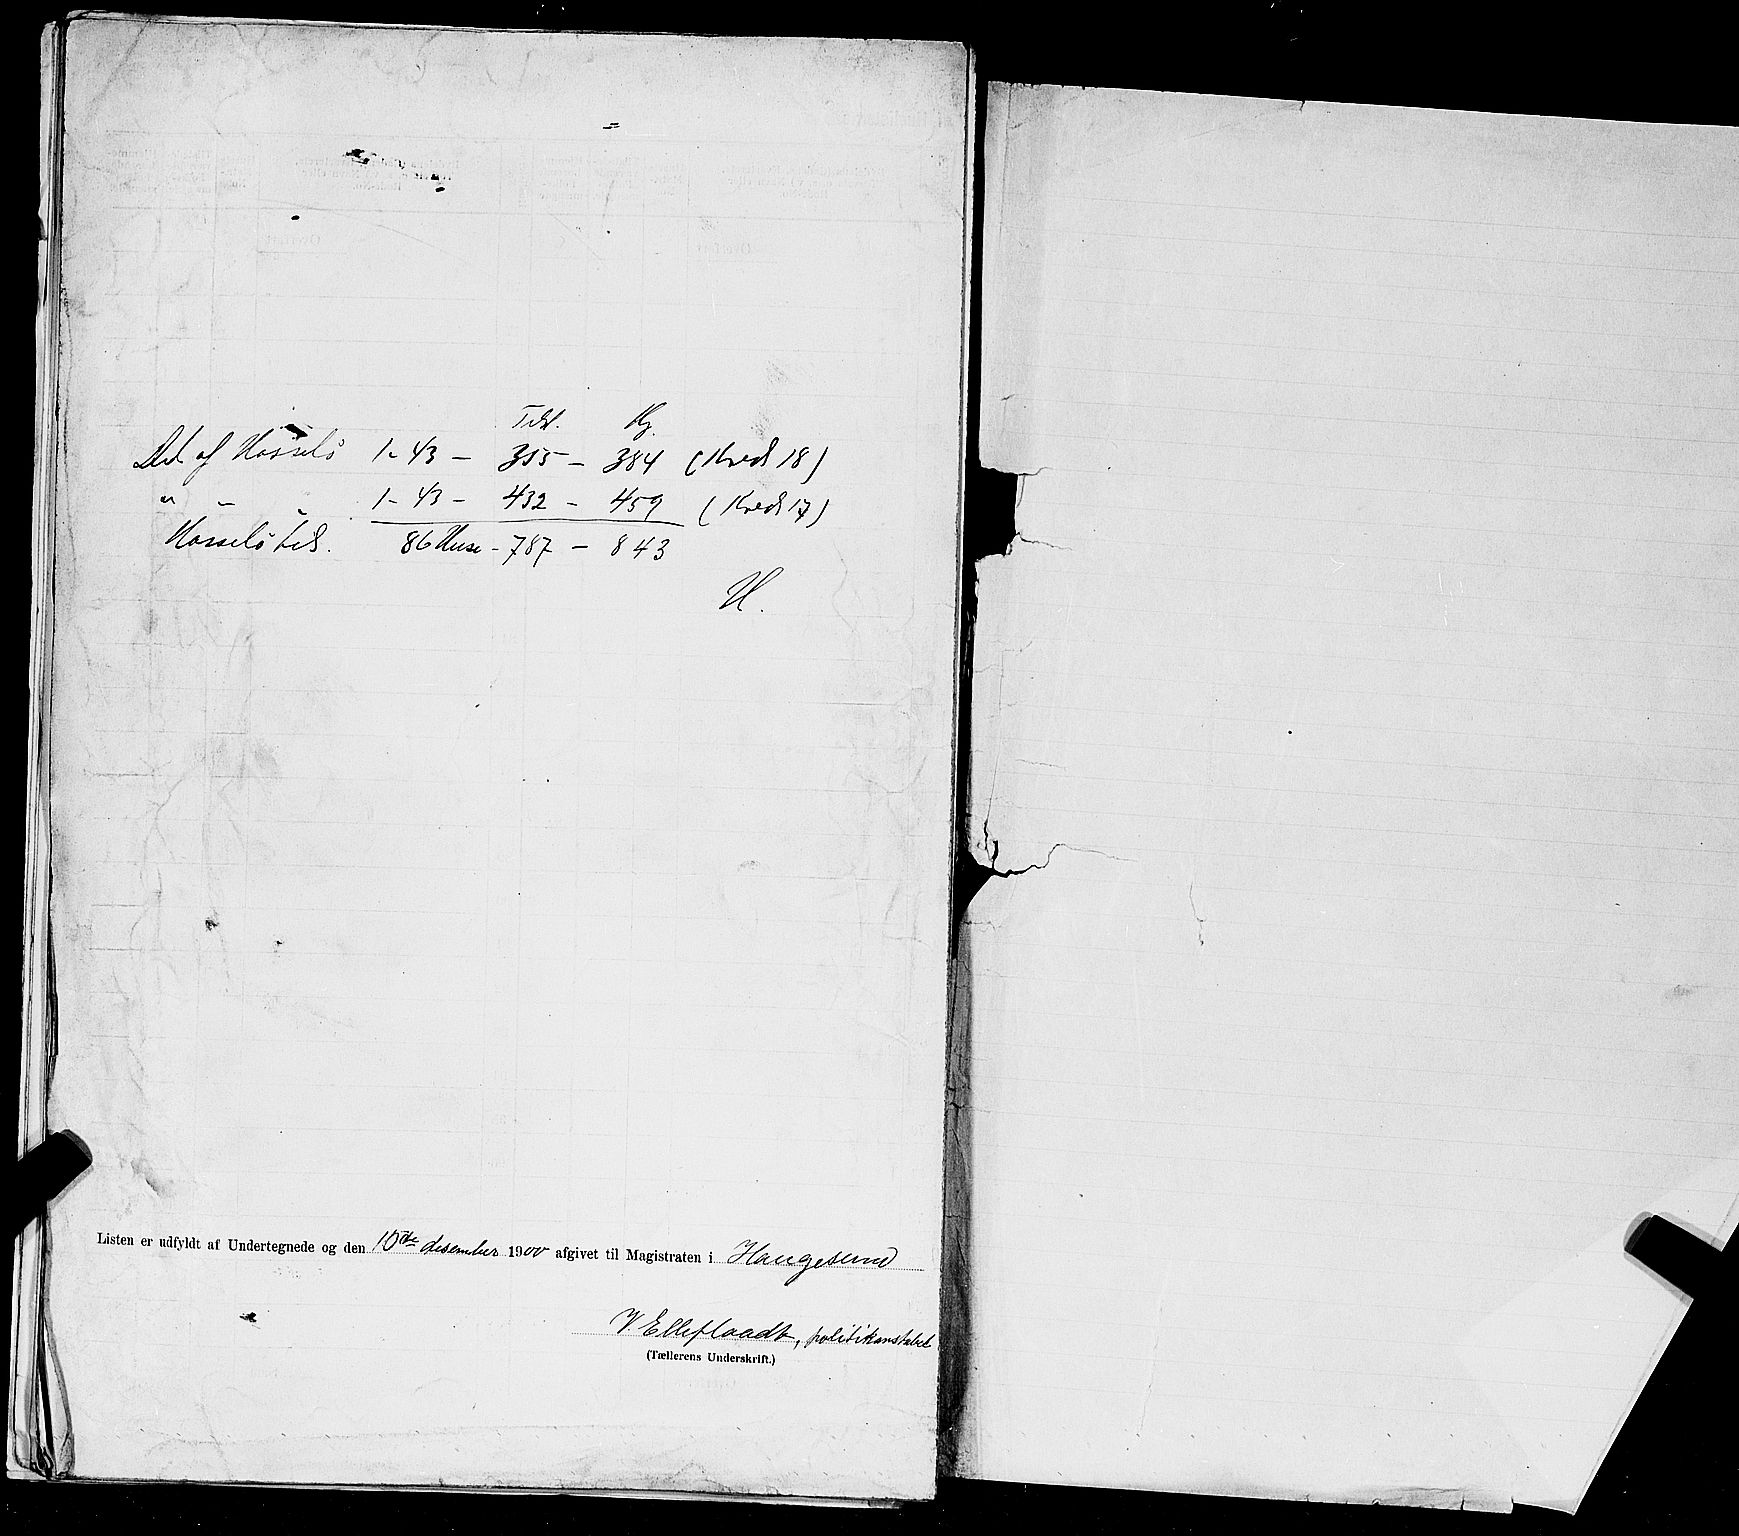 Tilst. Hj.
Del af Hasselö 1-43 - 355 - 384 (Kreds 18)
" - " 1-43 - 432 - 459 (Kreds 17)
Hasselö tils. 86 Huse - 787 - 843
H.
Listen er udfyldt af Undertegnede og den 10de desember 1900 afgivet til Magistraten i Haugesund
V Elleflaadt, politikonstabel
(Tællerens Underskrift.)